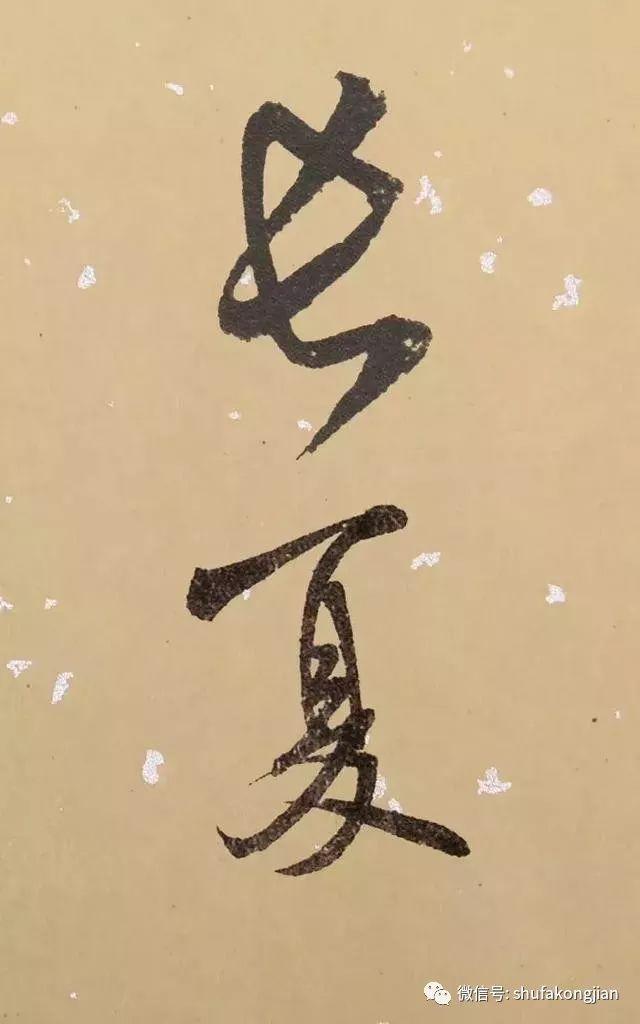 长夏
微信号: shufakongjian